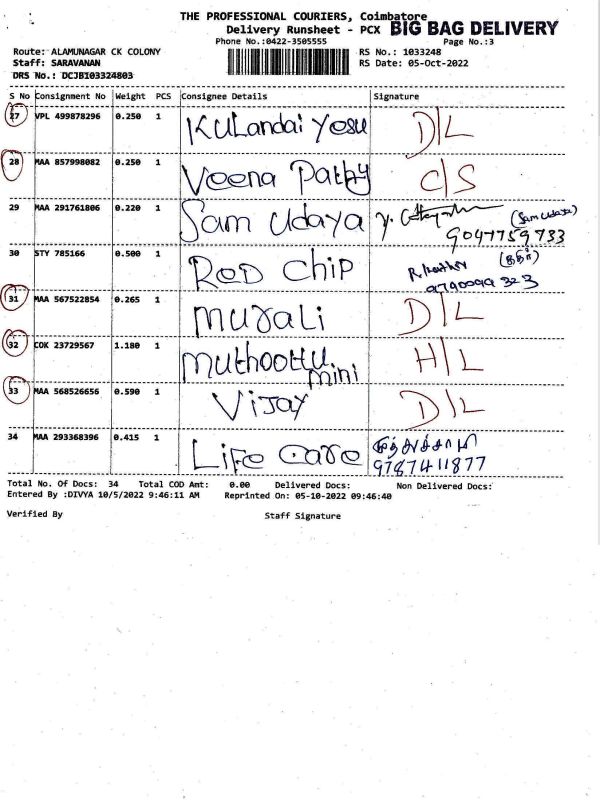 THE PROFESSIONAL COURIERS, Coimbatore
Delivery Runsheet - PCX BIG BAG DELIVERY
Phone No.:0422-3505555 Page No.:3
Route: ALAMUNAGAR CK COLONY RS No.: 1033248
Staff: SARAVANAN RS Date: 05-Oct-2022
DRS No.: DCJBI03324803
S No Consignment No Weight PCS Consignee Details Signature
27 VPL 499878296 0.250 1 Kulandai Yesu D/L
28 MAA 857998082 0.250 1 Veena Pathy C/S
29 MAA 291761806 0.220 1 Sam Udaya (Sam Udaya)
9047759733
30 STY 785166 0.500 1 Red Chip
9790099323
31 MAA 567522854 0.265 1 Murali D/L
32 COK 23729567 1.180 1 Muthoottu mini H/L
33 MAA 568526656 0.590 1 Vijay D/L
34 MAA 293368396 0.415 1 Life Care முத்துச்சாமி
9787411877
Total No. Of Docs: 34 Total COD Amt: 0.00 Delivered Docs: Non Delivered Docs:
Entered By :DIVYA 10/5/2022 9:46:11 AM Reprinted On: 05-10-2022 09:46:40
Verified By Staff Signature